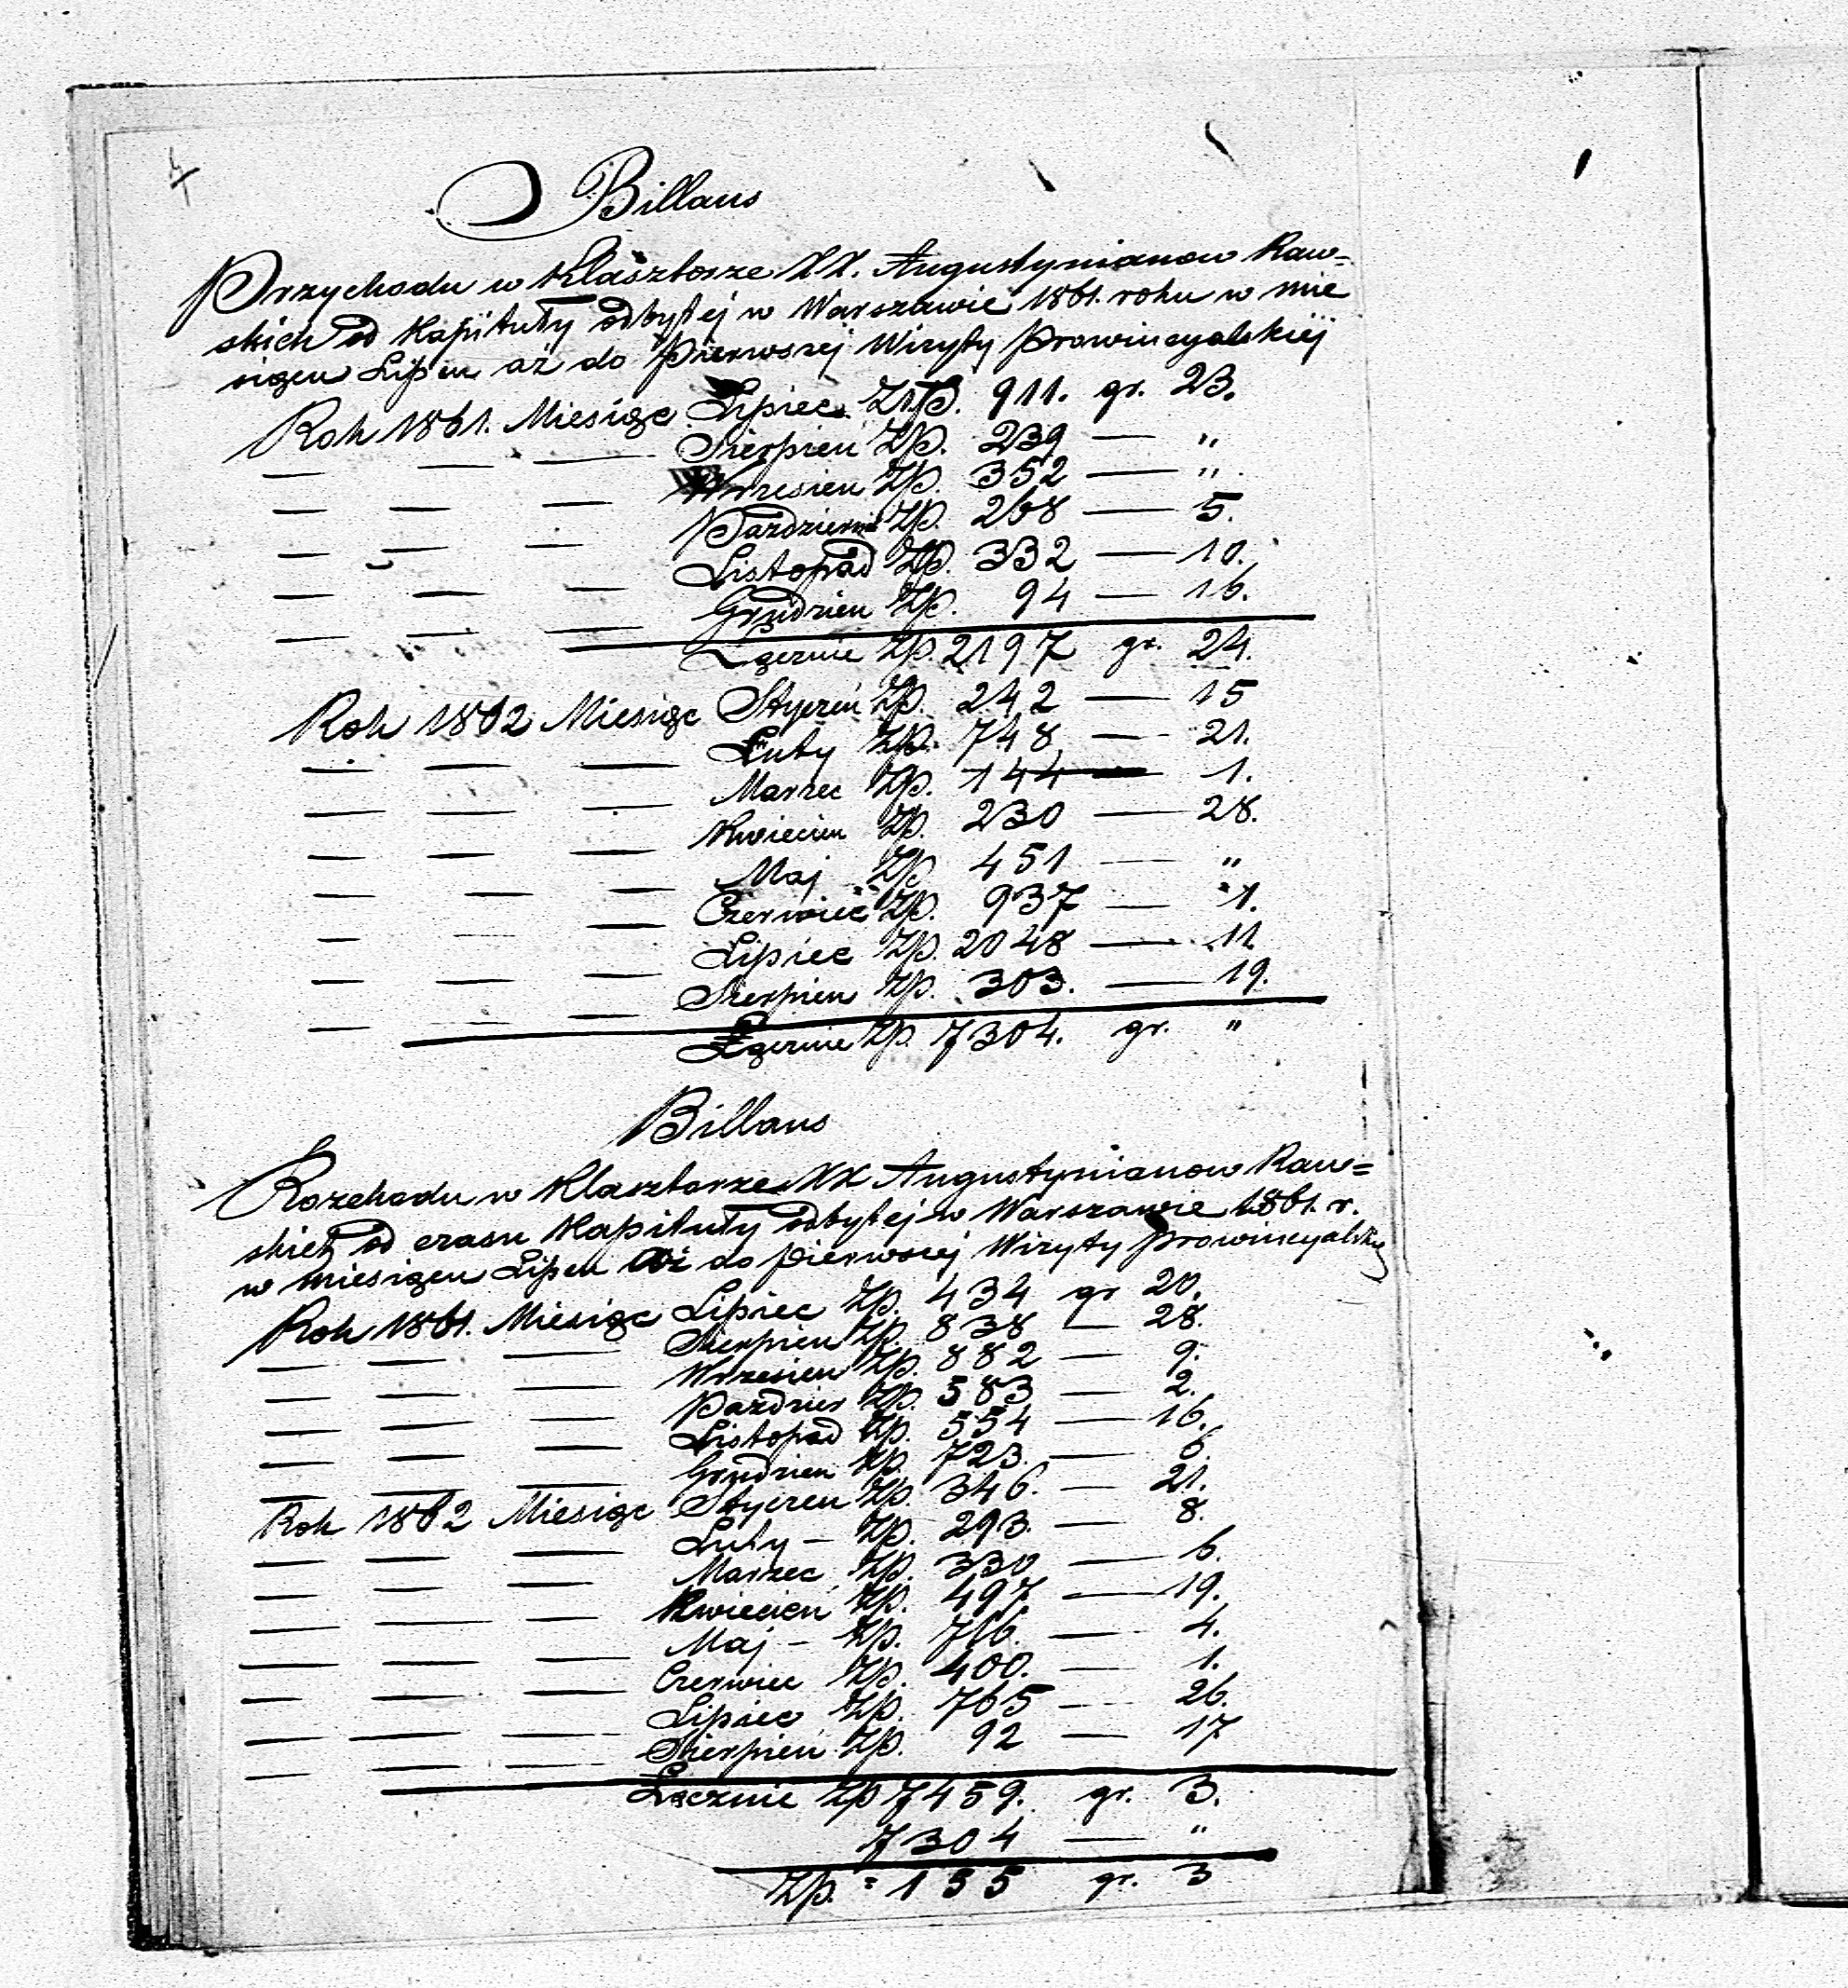 4
Billans
Przychodu w Klasztorze XX. Augustynianow Raw=
skich od Kapituły odbytej w Warszawie 1861. roku w mie
siącu Lipcu aż do pierwszej Wizyty Prowincyalskiéj
Rok 1861. Miesiąc Lipiec Złp. 911. gr. 23.
— — — Sierpień Zp. 239 — "
— — — Wrzesien Zp. 352 — "
— — — Pazdziernik Zp. 268 — 5.
— — — Listopad Zp. 332 — 10.
— — — Grudzien Zp. 94 — 16.
Łącznie Zp. 2197 gr. 24.
Rok 1862 Miesiąc Styczeń Zp. 242 — 15
— — — Luty Zp. 748 — 21.
— — — Marzec Zp. 144 — 1.
— — — Kwiecien Zp. 230 — 28.
— — — Maj Zp. 451 — "
— — — Czerwiec Zp. 937 — 1.
— — — Lipiec Zp. 2048 — 11
— — — Sierpien Zp. 303. — 19.
Łącznie Zp. 7304. gr. "
Billans
Rozchodu w Klasztorze XX Augustynianow Raw=
skich od czasu Kapituły odbytej w Warszawie 1861. r.
w miesiącu Lipcu aż do pierwszej Wizyty Prowincyalskiej
Rok 1861. Miesiąc Lipiec Zp. 434 gr 20.
— — — Sierpien Zp. 838 — 28.
— — — Wrzesien Zp. 882 — 9.
— — — Pazdzier Zp. 583 — 2.
— — — Listopad Zp. 554 — 16.
— — — Grudzien Zp. 723. — 6.
Rok 1862 Miesiąc Styczen Zp. 346. — 21.
— — — Luty — Zp. 293. — 8.
— — — Marzec Zp. 330 — 6.
— — — Kwiecień Zp. 497 — 19.
— — — Maj — Zp. 716. — 4.
— — — Czerwiec Zp. 400. — 1.
— — — Lipiec Zp. 765 — 26.
— — — Sierpień Zp. 92 — 17
Łącznie Zp 7459. gr. 3.
7304 — "
Zp. = 155 gr. 3